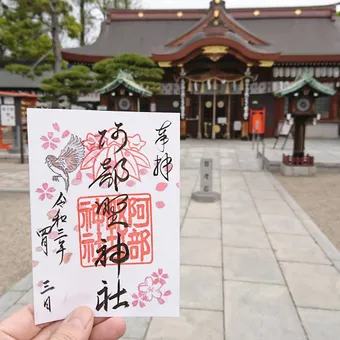 奉拝
阿部野神社
阿部
神社
令和三年
四月
三日